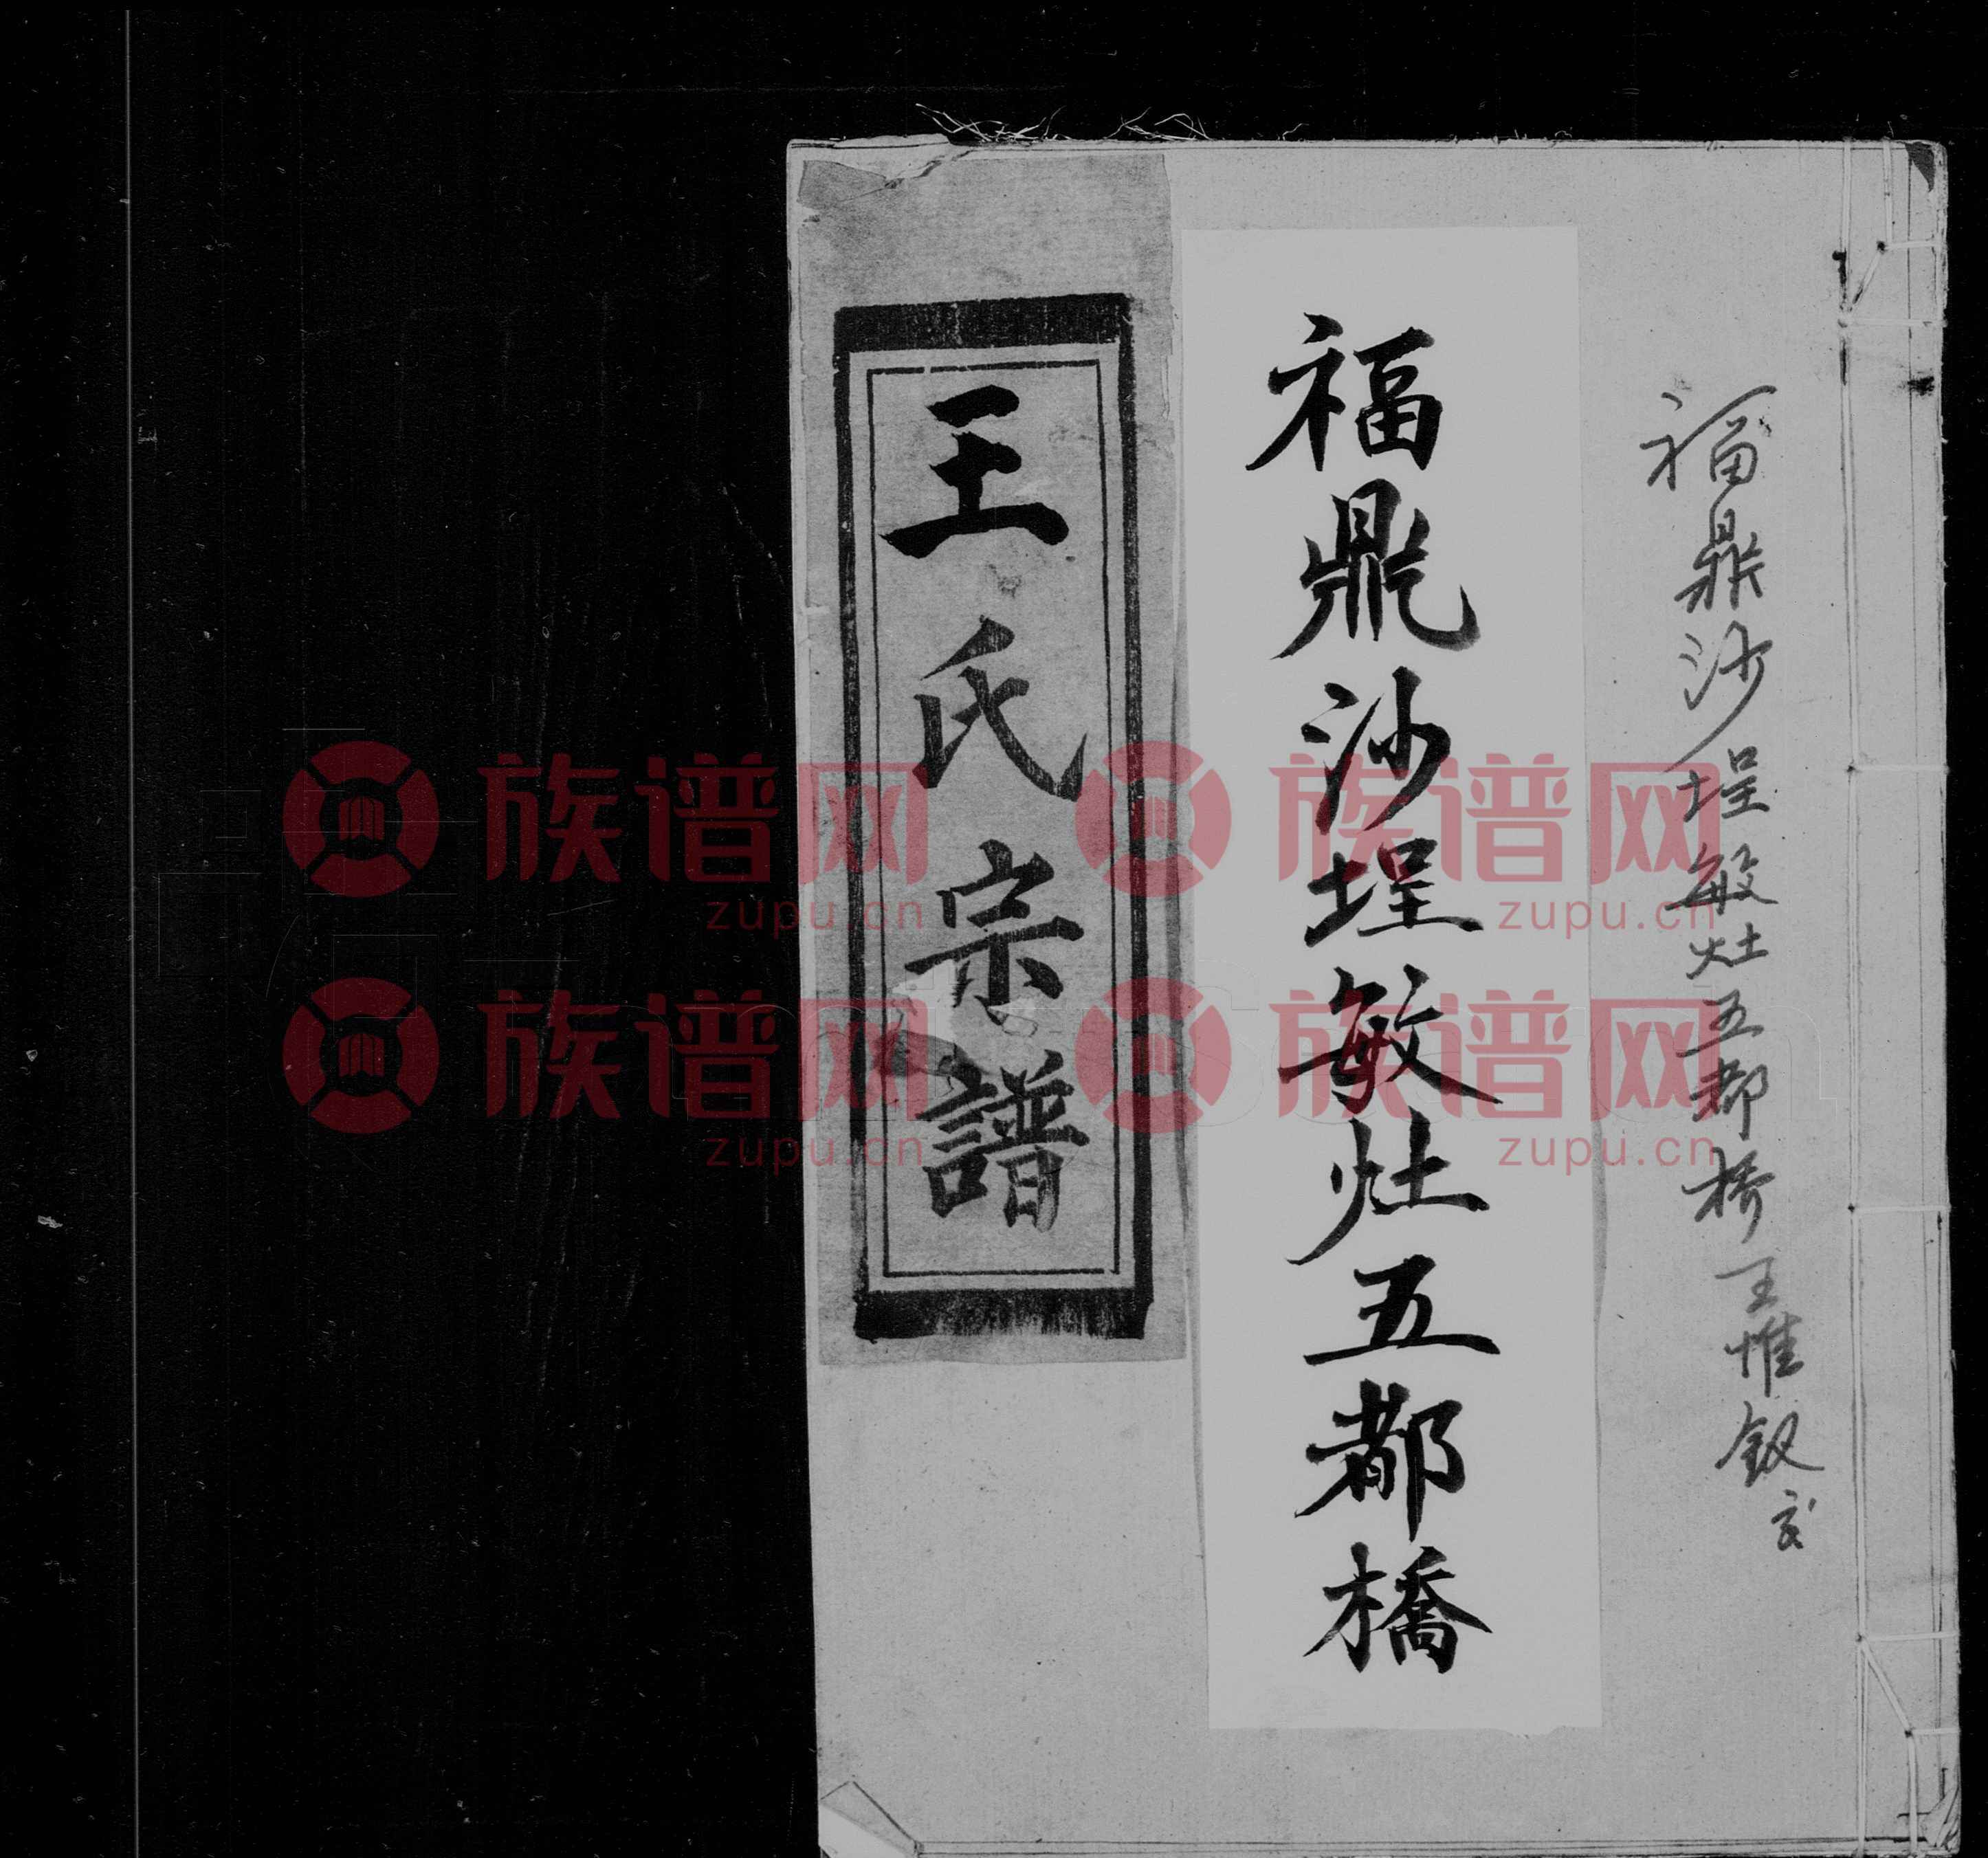 福鼎沙埕敏灶五都桥王惟釵
福鼎沙埕敏灶五都橋
王氏宗譜
族谱网 族谱网
zupu.cn zupu.cn
族谱网 族谱网
zupu.cn zupu.cn